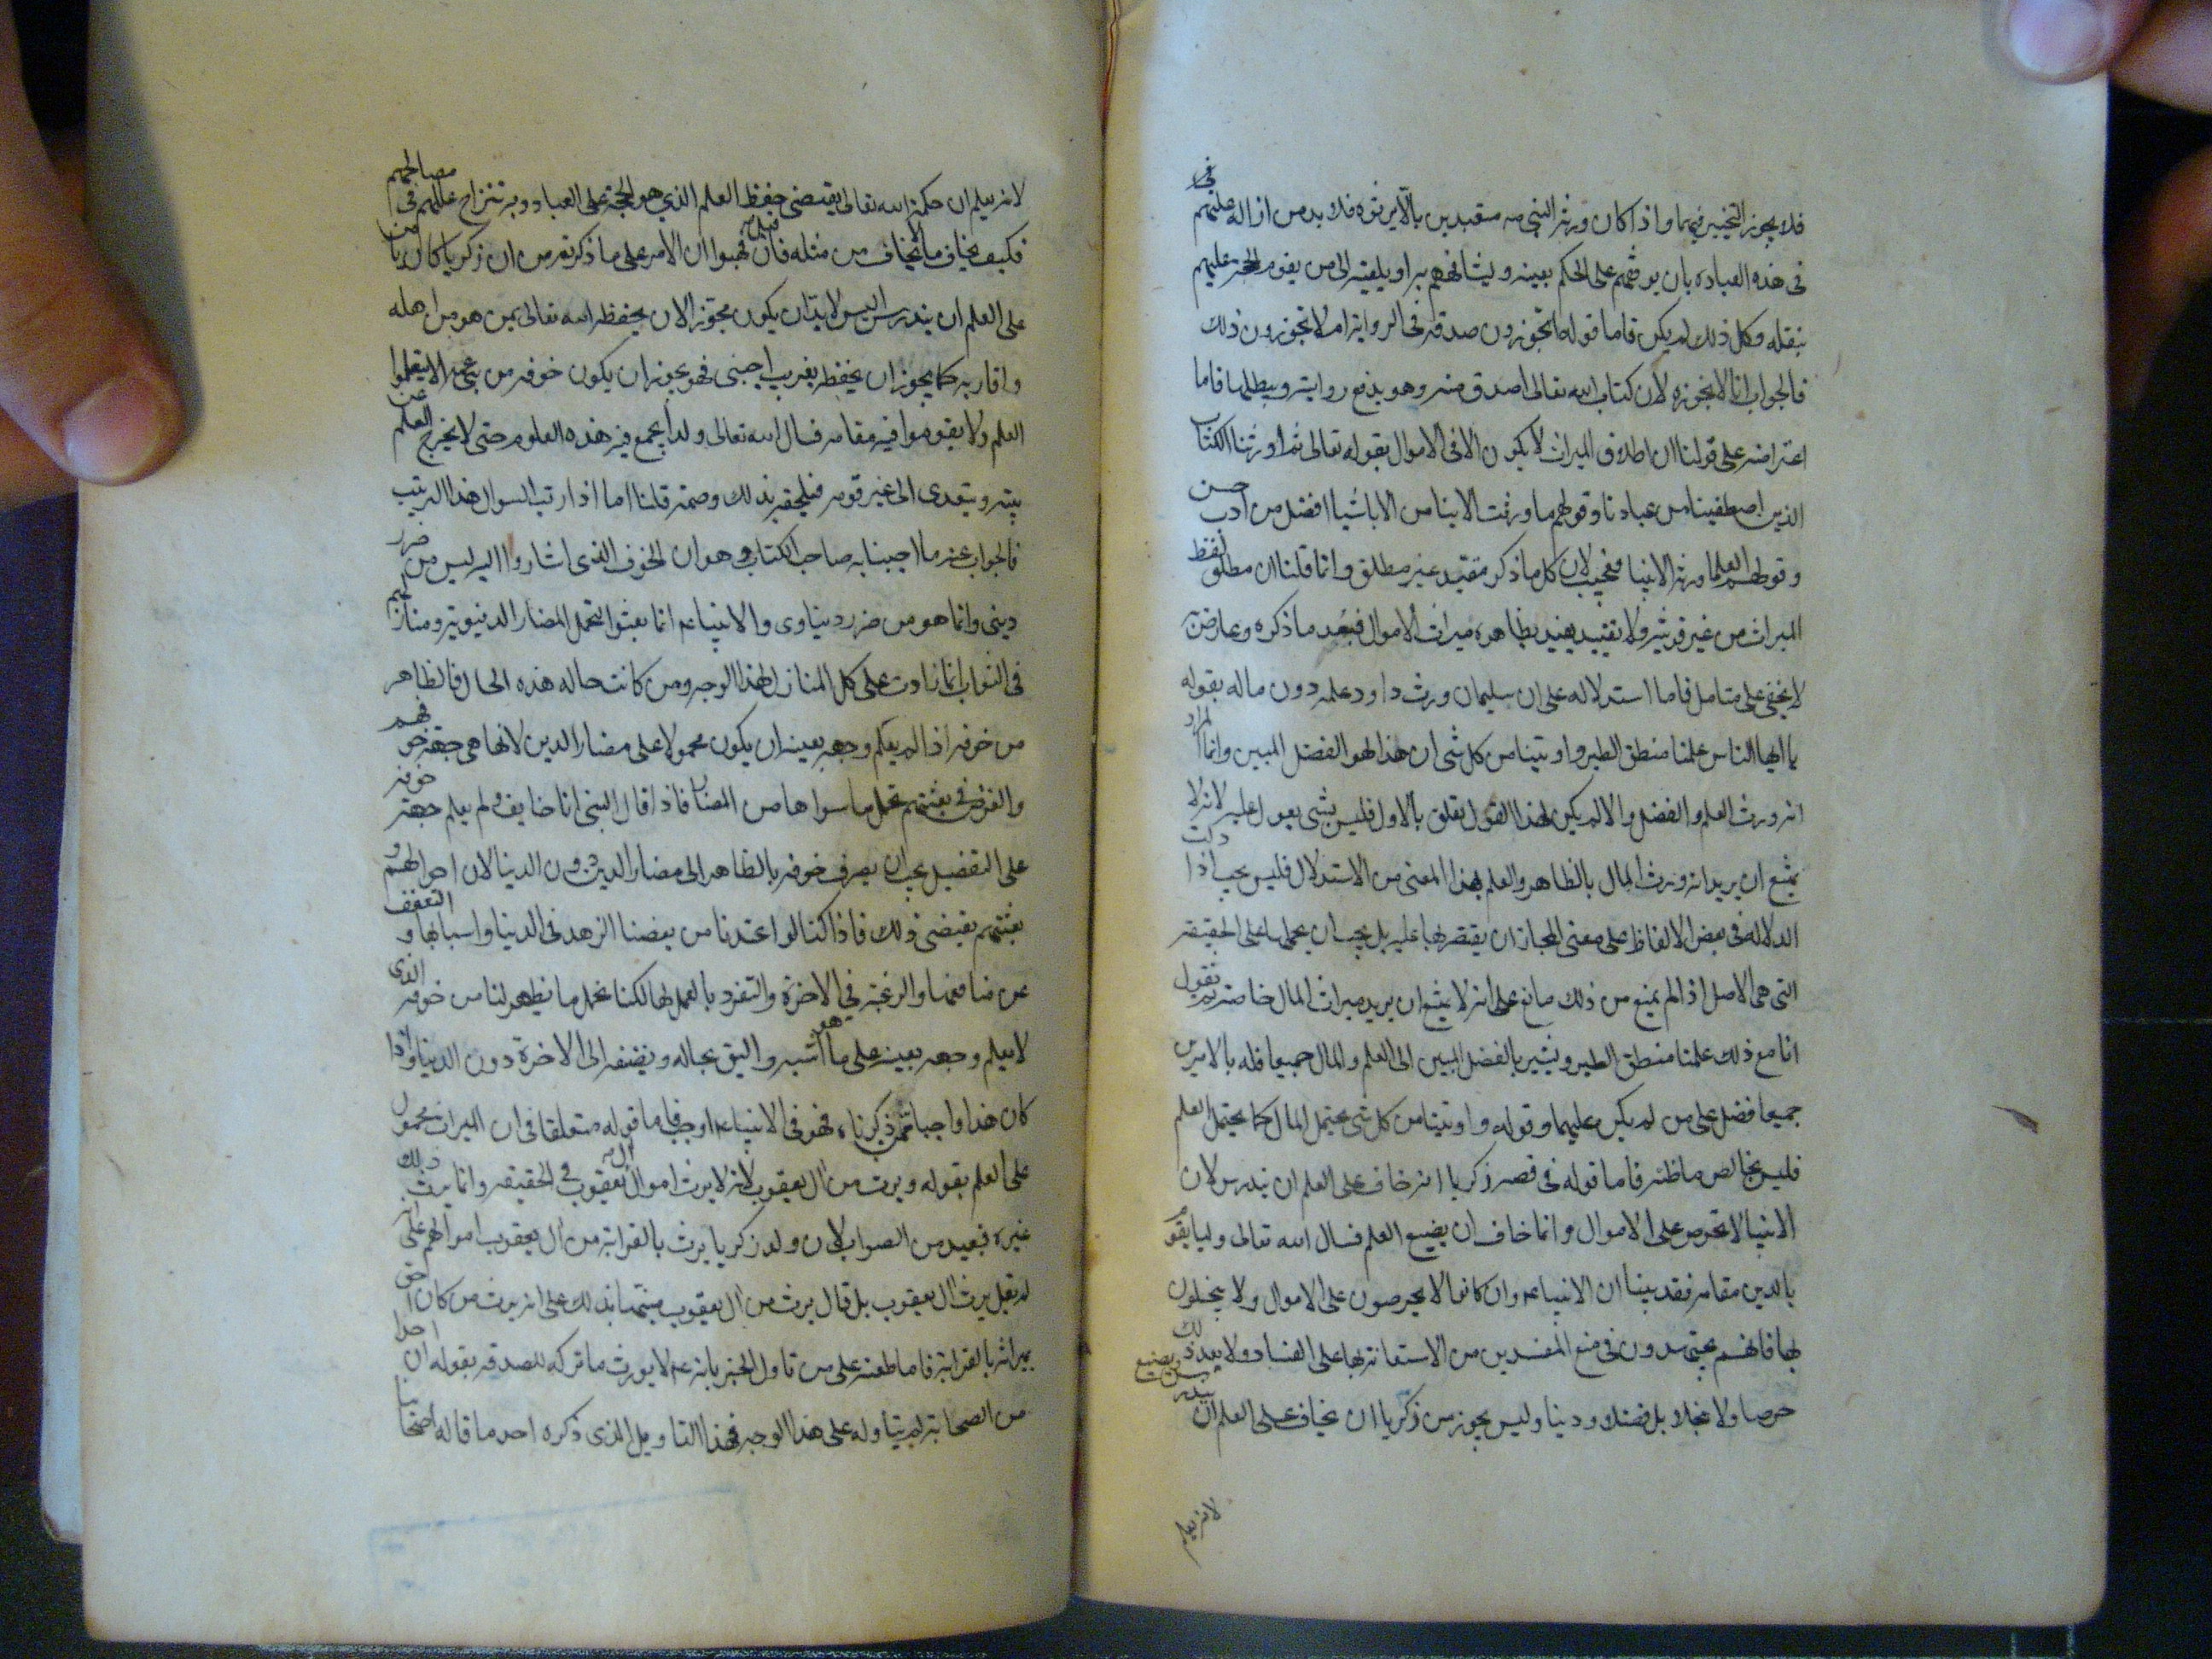 فلا يجوز التخيير فيهما واذا كان ورثة النبي ص متعبدين بالا يرثوه فلا بد من ازالة علتهم في
في هذه العبادة بان يوقفهم على الحكم بعينه ويشافههم به او يلقيه الى من يقوم الحجة عليهم
بنقله وكل ذلك لم يكن فاما قوله اتجوزون صدقه في الرواية ام لا تجوزون ذلك
فالجواب انا لا نجوزه لان كتاب الله تعالى اصدق منه وهو يدفع روايته ويبطلها فاما
اعتراضه على قولنا ان اطلاق الميراث لا يكون الا في الاموال بقوله تعالى ثم اورثنا الكتاب
الذين اصطفينا من عبادنا وقولهم ما ورثت الابنا من الابا شيا افضل من ادب حسن
وقولهم العلما ورثة الانبيا فعجيب لان كل ما ذكر مقيد غير مطلق وانما قلنا ان مطلق لفظ
الميراث من غير قرينة ولا تقييد يفيد بظاهره ميراث الاموال فبعد ما ذكره وعارض به
لا يخفى على متامل فاما استدلاله على ان سليمان ورث داود علمه دون ماله بقوله
يا ايها الناس علمنا منطق الطير واوتينا من كل شى ان هذا لهو الفضل المبين وانما المراد
انه ورث العلم والفضل والا لم يكن لهذا القول تعلق بالاول فليس بشى يعول عليه لانه لا
يمتنع ان يريد انه ورث المال بالظاهر والعلم بهذا المعنى من الاستدلال فليس يجب اذا دلت
الدلالة في بعض الالفاظ على معنى المجاز ان يقتصر بها عليه بل يجب ان يحملها على الحقيقة
التي هي الاصل اذا لم يمنع من ذلك مانع على انه لا يمتنع ان يريد ميراث المال خاصة ثم يقول
انا مع ذلك علمنا منطق الطير ويشير بالفضل المبين الى العلم والمال جميعا فله بالامرين
جميعا فضل على من لم يكن عليهما وقوله واوتينا من كل شى يحتمل المال كما يحتمل العلم
فليس بخالص ما ظنه فاما قوله في قصة زكريا انه خاف على العلم ان يندرس لان
الانبيا لا تحرص على الاموال وانما خاف ان يضيع العلم فسال الله تعالى وليا يقوم
بالدين مقامه فقد بينا ان الانبياء وان كانوا لا يحرصون على الاموال ولا يبخلون
بها فانهم يجتهدون في منع المفسدين من الاستعانة بها على الفساد ولا يعد ذلك
حرصا ولا بخلا بل فضلا ودينا وليس يجوز من زكريا ان يخاف على العلم ان يندرس ويضيع
لانه يعلم
لانه يعلم ان حكمة الله تعالى يقتضى حفظ العلم الذي هو الحجة على العباد وبه تنزاح عللهم في مصالحهم
فكيف يخاف ما لا يخاف من مثله فان قيل فهبوا ان الامر على ما ذكرتم من ان زكريا كان امن
على العلم ان يندرس اليس لا بد ان يكون مجوزا لان يحفظه الله تعالى بمن هو من اهله
واقاربه كما يجوز ان يحفظه بغريب اجنبي فهو يجوز ان يكون خوفه من بني عمه الا يتعلموا
العلم ولا يقوموا فيه مقامه فسال الله تعالى ولدا يجمع فيه هذه العلوم حتى لا يخرج العلم عن
بيته ويتعدى الى غير قومه فيلحقه بذلك وصمة قلنا اما اذا رتب السوال هذا الترتيب
فالجواب عنه ما اجبنا به صاحب الكتاب وهو ان الخوف الذي اشاروا اليه ليس من ضرر
ديني وانما هو من ضرر دنياوي والانبياء انما بعثوا لتحمل المضار الدنيوية ومنازلهم
في الثواب انما زادت على كل المنازل لهذا الوجه ومن كانت حاله هذه الحال فالظاهر
من خوفه اذا لم يعلم وجهه بعينه ان يكون محمولا على مضار الدين لانها هي جهة خوفهم
والغرض في بعثتهم تحمل ما سواها من المضار فاذا قال النبي انا خايف ولم يعلم جهة خوفه
على التفصيل يجب ان يصرف خوفه بالظاهر الى مضار الدين دون الدنيا لان احوالهم و
بعثتهم يقتضى ذلك فاذا كنا لو اعتدنا من بعضنا الزهد في الدنيا واسبابها والتعفف
عن منافعها والرغبة في الاخرة والتفرد بالعمل لها لكنا نحمل ما يظهر لنا من خوفه الذى
لا يعلم وجهه بعينه على ما هو اشبه واليق بحاله ويضيفه الى الاخرة دون الدنيا واذا
كان هذا واجبا فيمن ذكرناه فهو في الانبياء اوجب فاما قوله متعلقا في ان الميراث محمول
على العلم بقوله ويرث من آل يعقوب لانه لا يرث اموال آل يعقوب في الحقيقة وانما يرث ذلك
غيره فبعيد من الصواب لان ولد زكريا يرث بالقرابة من آل يعقوب اموالهم على انه
لم يقل يرث آل يعقوب بل قال يرث من آل يعقوب منبها بذلك على انه يرث من كان احق
بميراثه بالقرابة فاما طعنه على من تاول الخبر بانه ع لا يورث ما تركه للصدقة بقوله ان احدا
من الصحابة لم يتاوله على هذا الوجه فهذا التاويل الذى ذكره احد ما قاله اصحابنا